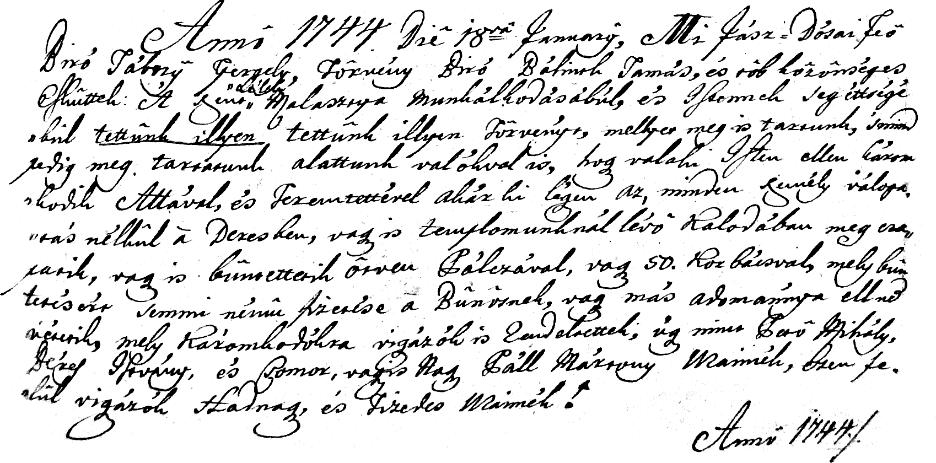 Annô 1744 Diê 18va Januarÿ, Mi Jász=Dósai Feö
Biró Táborÿ Gergely, Törvény Biró Bálinth Tamás, és töb közönséges
Esküttek: A Malasztya Munhálkodásábúl, és Istennek segéttsigé
-bűl tettünk illyen tettünk illyen Törvényt, mellyet meg is tartunk, s mind
pedig meg tartatunk alattunk valókval is, hog valaki Isten ellen károm
-kodik Attával, és Teremtettével akárki légen az, minden személy váloga,,
,,tás nélkűl à Deresben, vag is templomunknál lévő Kalodában meg
vag is bűntettetik Ötven Pálczával, vag 50. Korbácsval, mely bűn
tetésért semmi némű fizetése à Bűnösnek, vag más adománnya el nem
vétetik, mely Káromkodókra vigázók is rendeltettek, úg mint Pető Mihály,
István, és Csomor, vag is Nag Páll Mártony Uraimék, ezen fe-
-lűl vigázók Hadnag, és Tizedes Uraimék!
Annô 1744./.